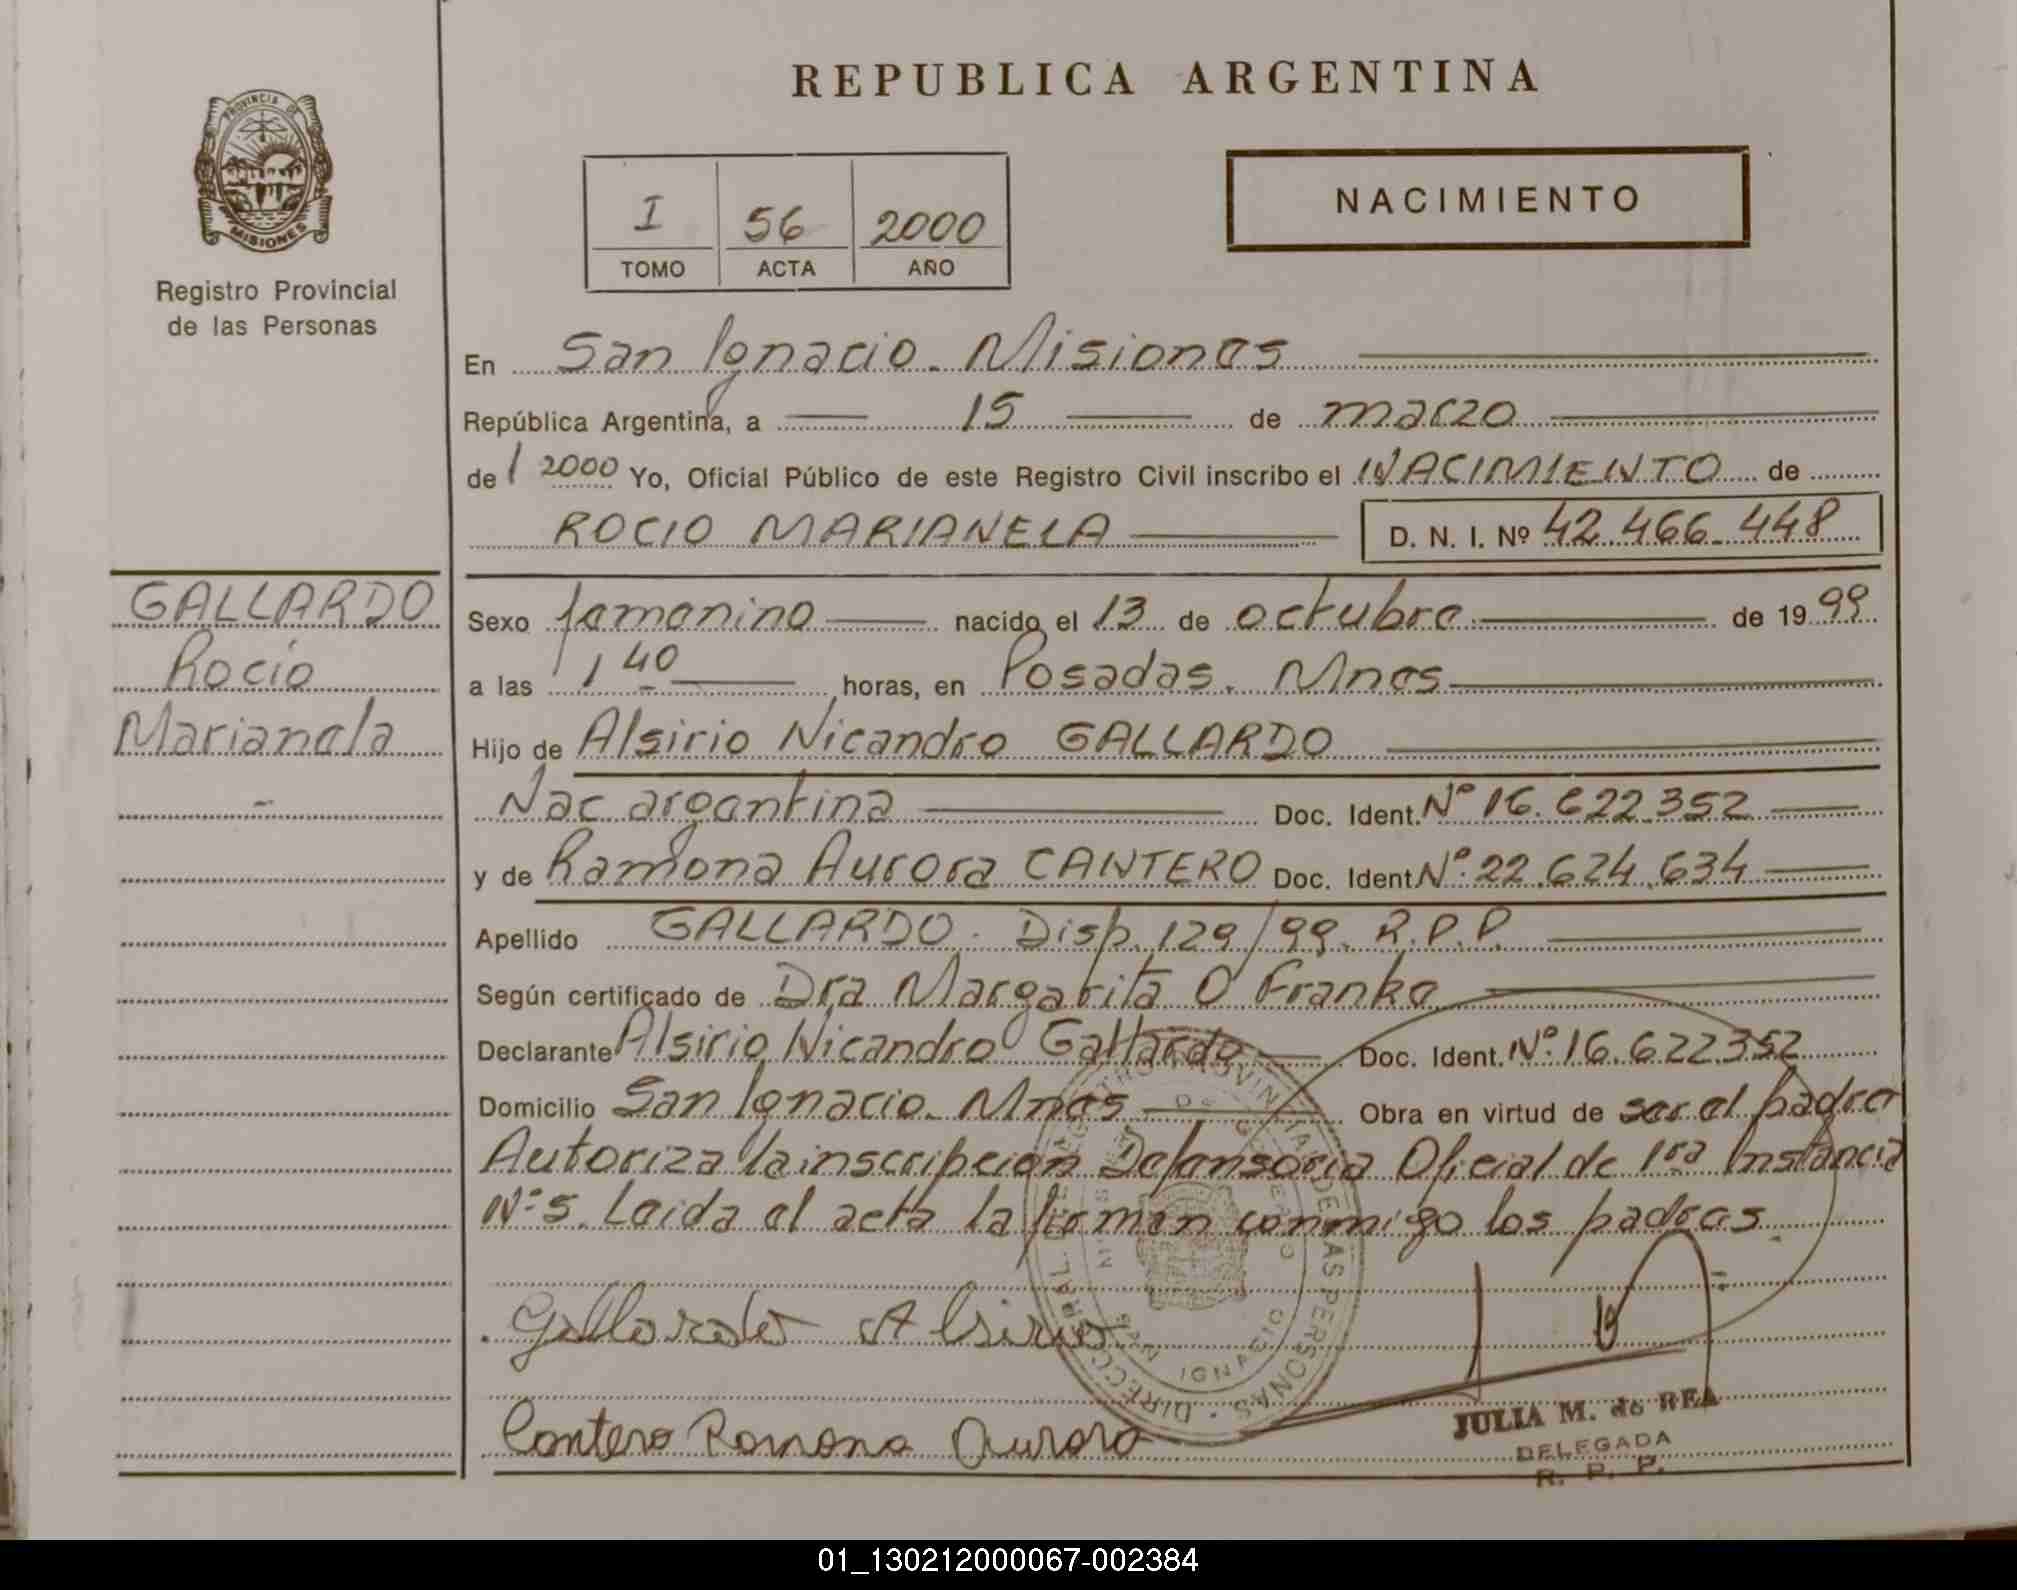 REPUBLICA ARGENTINA
PROVINCIA DE
MISIONES
Registro Provincial
de las Personas
I 56 2000
TOMO ACTA AÑO
NACIMIENTO
En San Ignacio. Misiones
República Argentina, a 15 de marzo
de 2000 Yo, Oficial Público de este Registro Civil inscribo el NACIMIENTO de
ROCIO MARIANELA D. N. I. Nº 42.466.448
GALLARDO
Rocío
Marianela
Sexo femenino nacido el 13 de octubre de 1999
a las 1 40 horas, en Posadas. Mnes
Hijo de Alsirio Nicandro GALLARDO
Nac argentina Doc. Ident. Nº 16.622.352
y de Ramona Aurora CANTERO Doc. Ident. Nº 22.624.634
Apellido GALLARDO. Disp. 129/99. R.P.P.
Según certificado de Dra Margarita O Franke
Declarante Alsirio Nicandro Gallardo Doc. Ident. Nº 16.622.352
Domicilio San Ignacio. Mnes Obra en virtud de ser el padre
Autoriza la inscripción Defensoría Oficial de 1ra Instancia
Nº 5. Leida el acta la firman conmigo los padres.
Gallardo Alsirio
Cantero Ramona Aurora
JULIA M. de REA
DELEGADA
R. P. P.
01_130212000067-002384